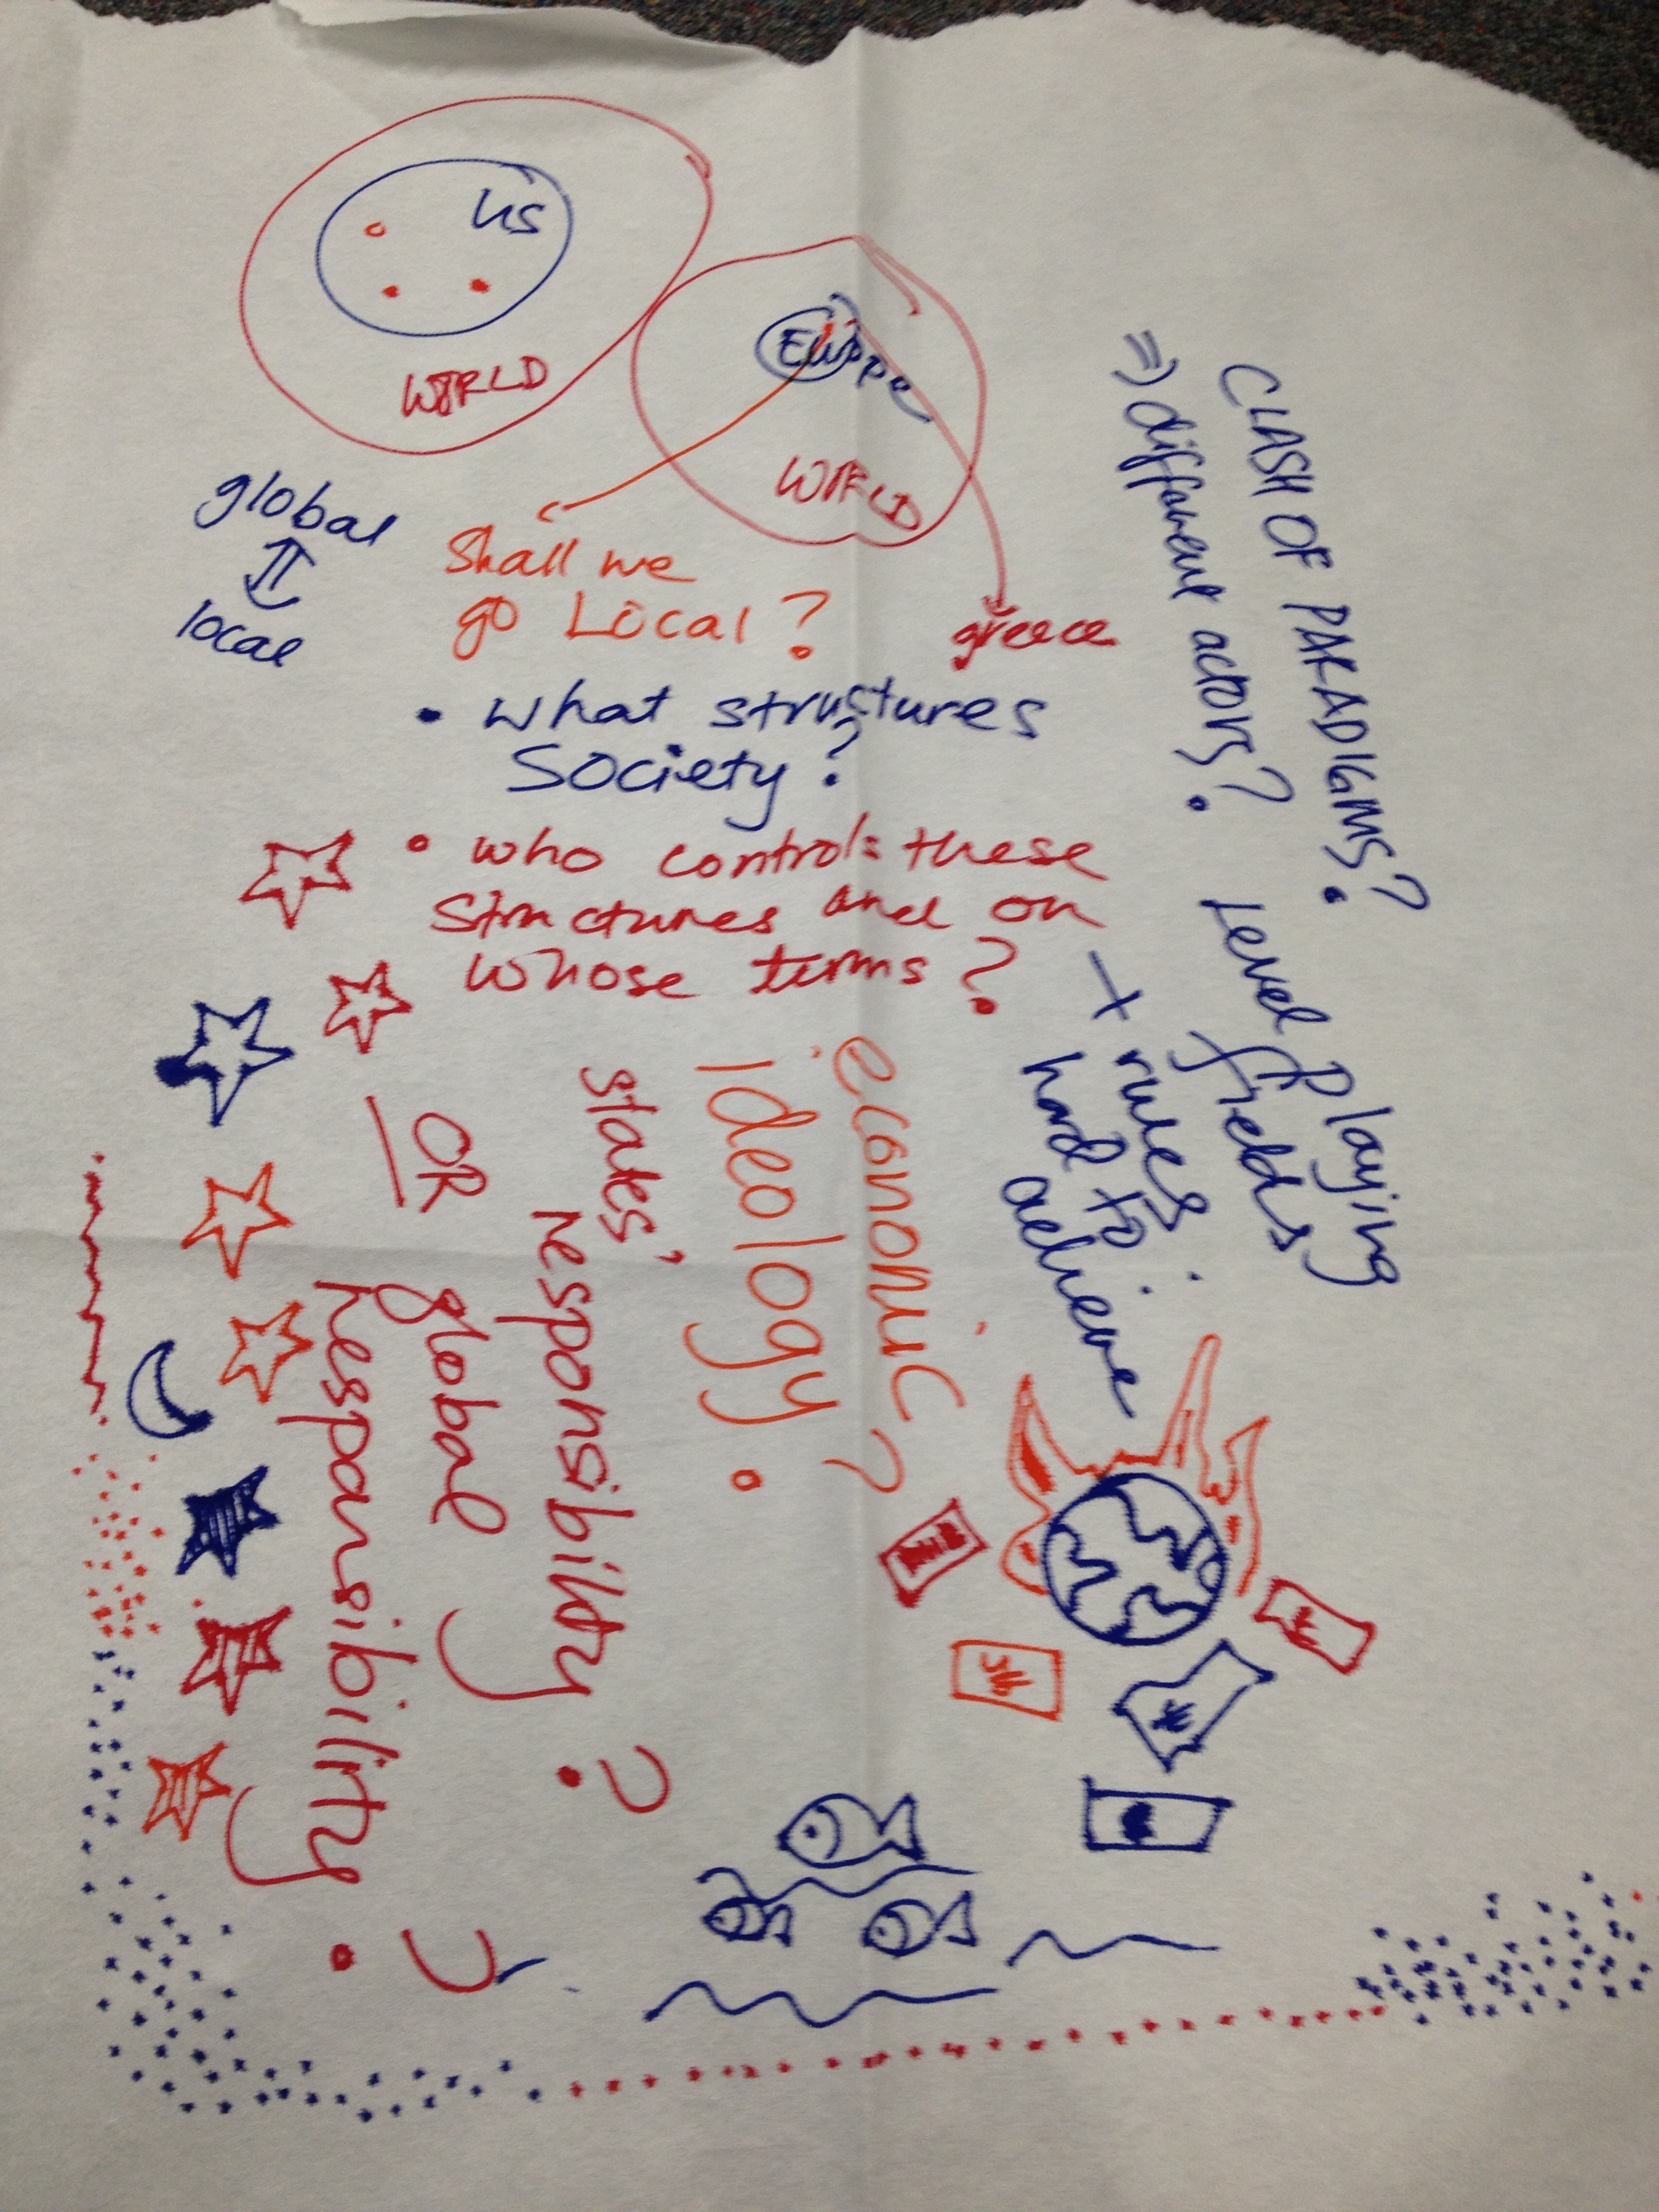 US
WORLD
Europe
WORLD
global
local
Shall we
go Local?
greece
• what structures
society?
• who controls these
structures and on
whose terms?
CLASH OF PARADIGMS?
⇒ different actors?
Level playing
fields
+ rules:
hard to
achieve
economic
ideology?
states'
responsibility?
OR
global
responsibility?